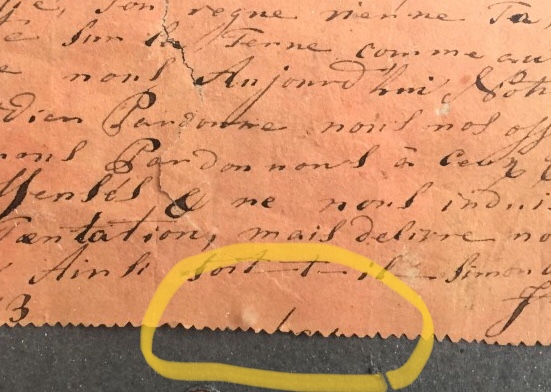 son regne vienne Ta
sur la Terre comme au
nous Aujourd'hui, Notre
dien Pardonne nous nos off
nous Pardonnons à ceux
ffensés & ne nous indui
Tentation, mais delivre no
Ainsi soit-t-il
3